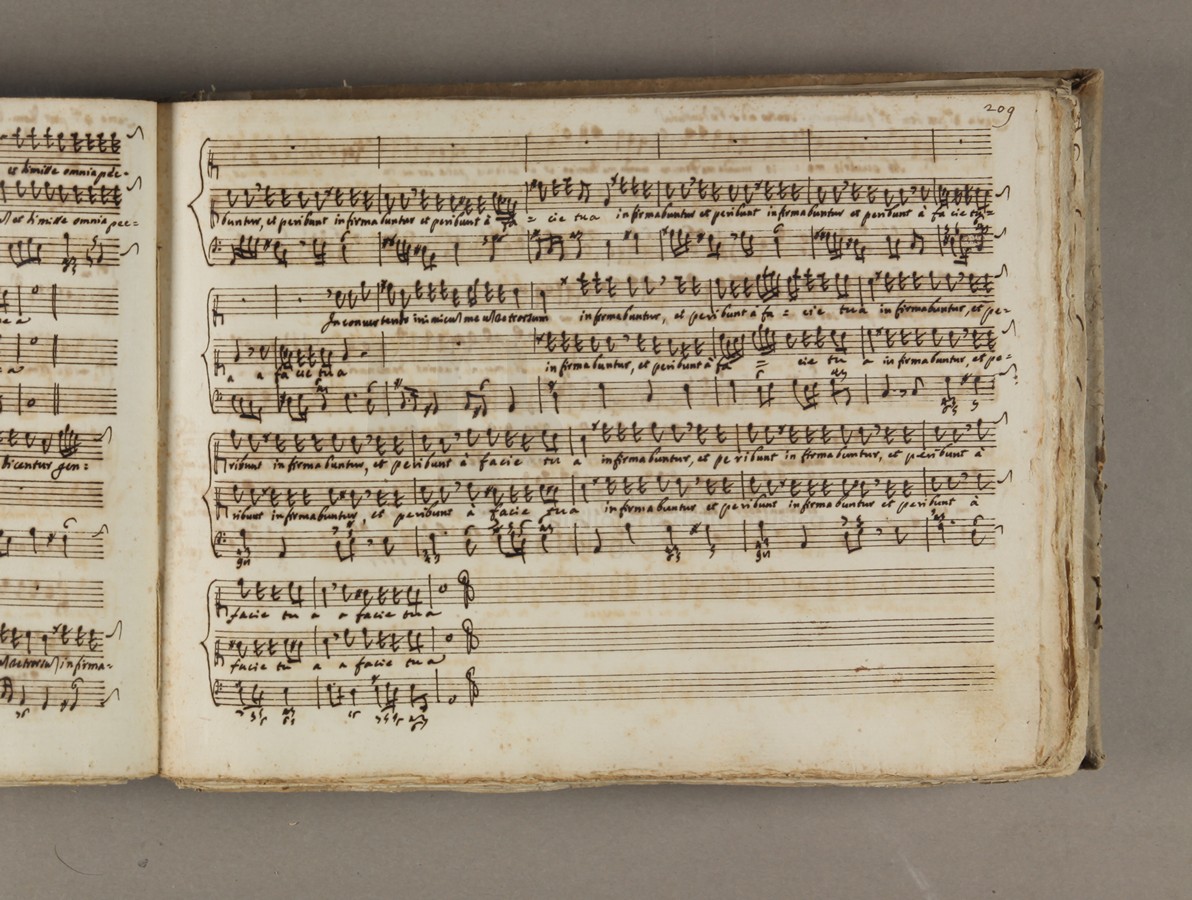 et dimitte omnia pec-
et dimitte omnia pec=
dicentur gen:
infirma=
209
buntur, et peribunt infirmabuntur et peribunt à fa = cie tua infirmabuntur et peribunt infirmabuntur et peribunt à facie tu=
In convertendo inimicum meum retrorsum infirmabuntur, et peribunt à fa = cie tua infirmabuntur, et pe=
a a facie tua infirmabuntur, et peribunt à fa = cie tu a infirmabuntur, et pe=
ribunt infirmabuntur, et peribunt à facie tu a infirmabuntur, et peribunt infirmabuntur, et peribunt à
ribunt infirmabuntur, et peribunt a facie tua infirmabuntur et peribunt infirmabuntur et peribunt à
facie tu a a facie tua
facie tu a a facie tua